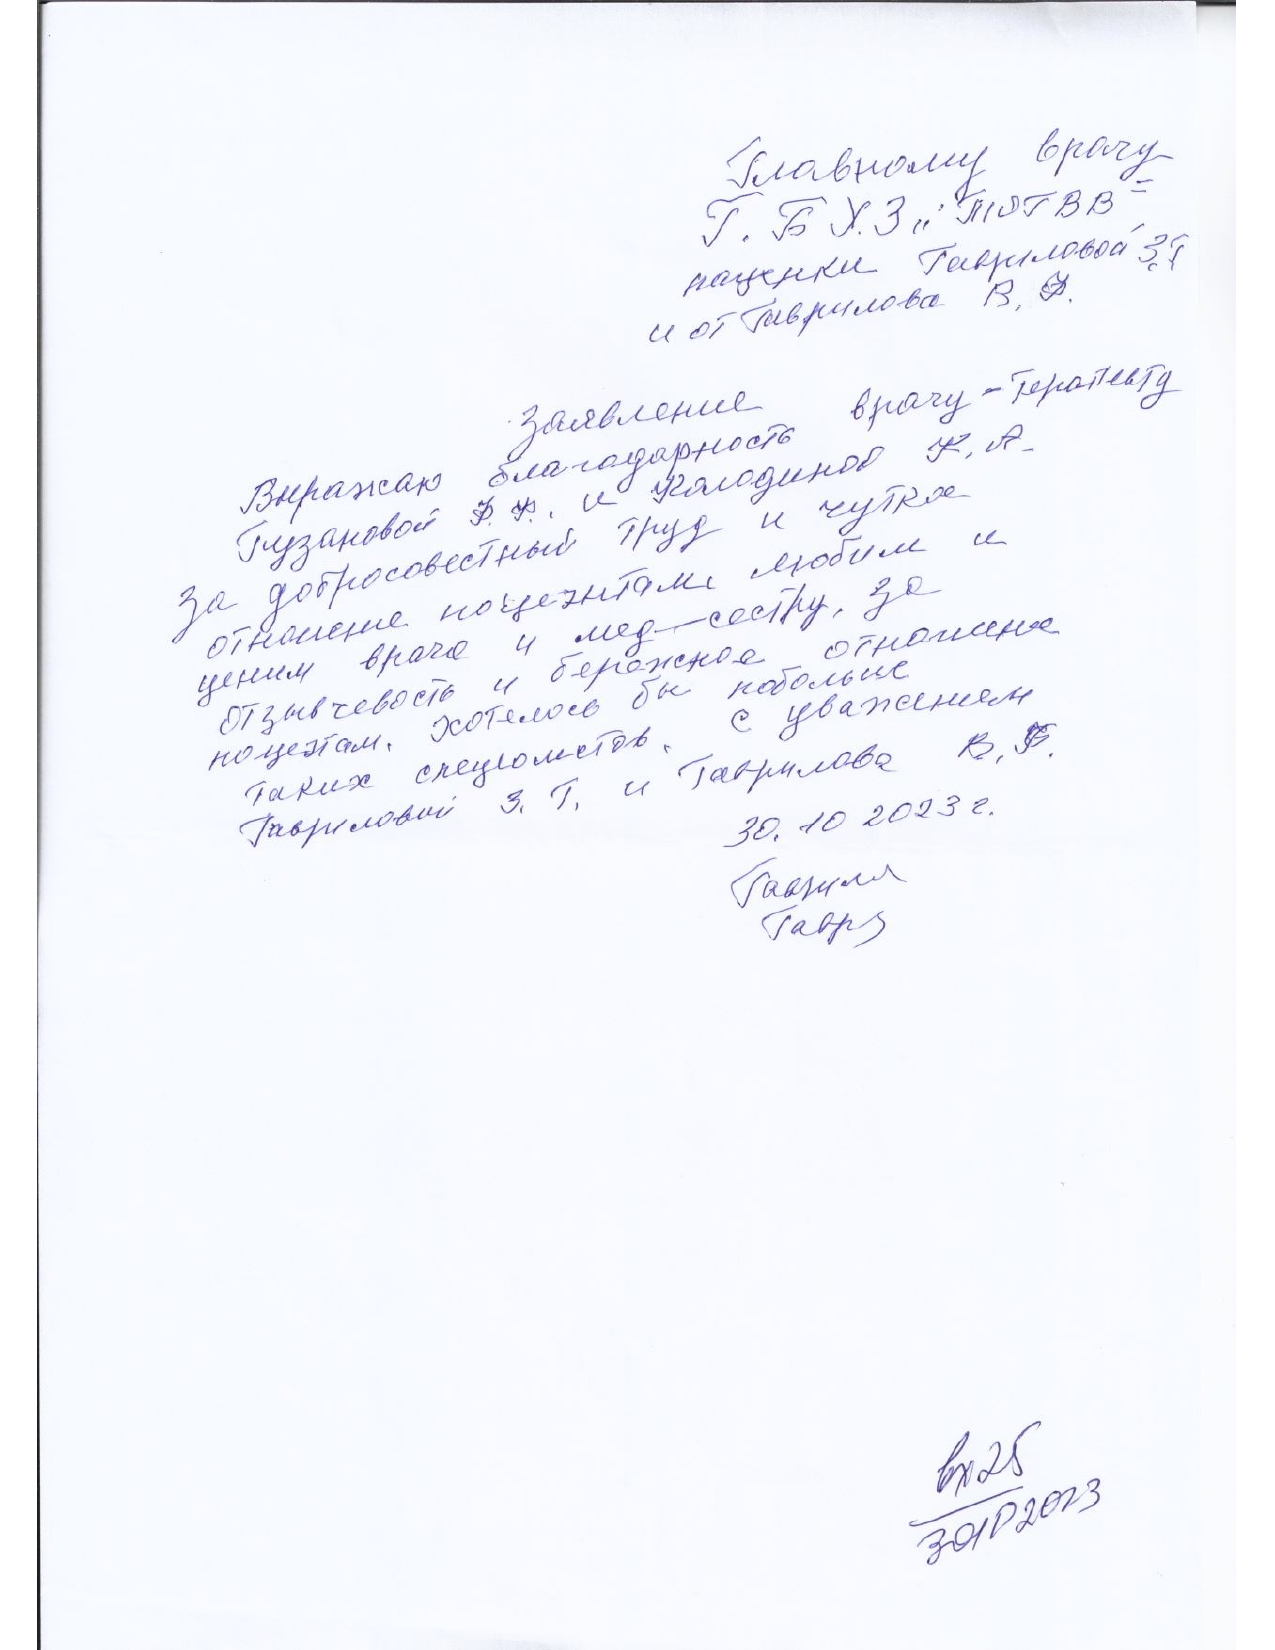 Главному врачу
Г.БУ.З „ТОГВВ"
пациенки Гавриловой З.Г
и от Гаврилова В.Ф.
Заявление
Выражаю благодарность врачу-терапевту
Глузановой Ф.Ф. и Колодиной К.А.
за добросовестный труд и чуткое
отношение поциентам. любим и
ценим врача и мед-сестру, за
отзывчевость и бережное отношение
поцентам. хотелось бы побольше
таких специолистов. с уважением
Гавриловой З.Г. и Гаврилова В.Ф.
30.10 2023 г.
вх 25
30102023